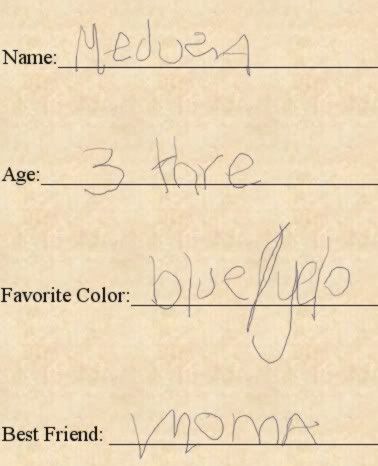 Name: Meduza
Age: 3 thre
Favorite Color: blue/yelo
Best Friend: moma